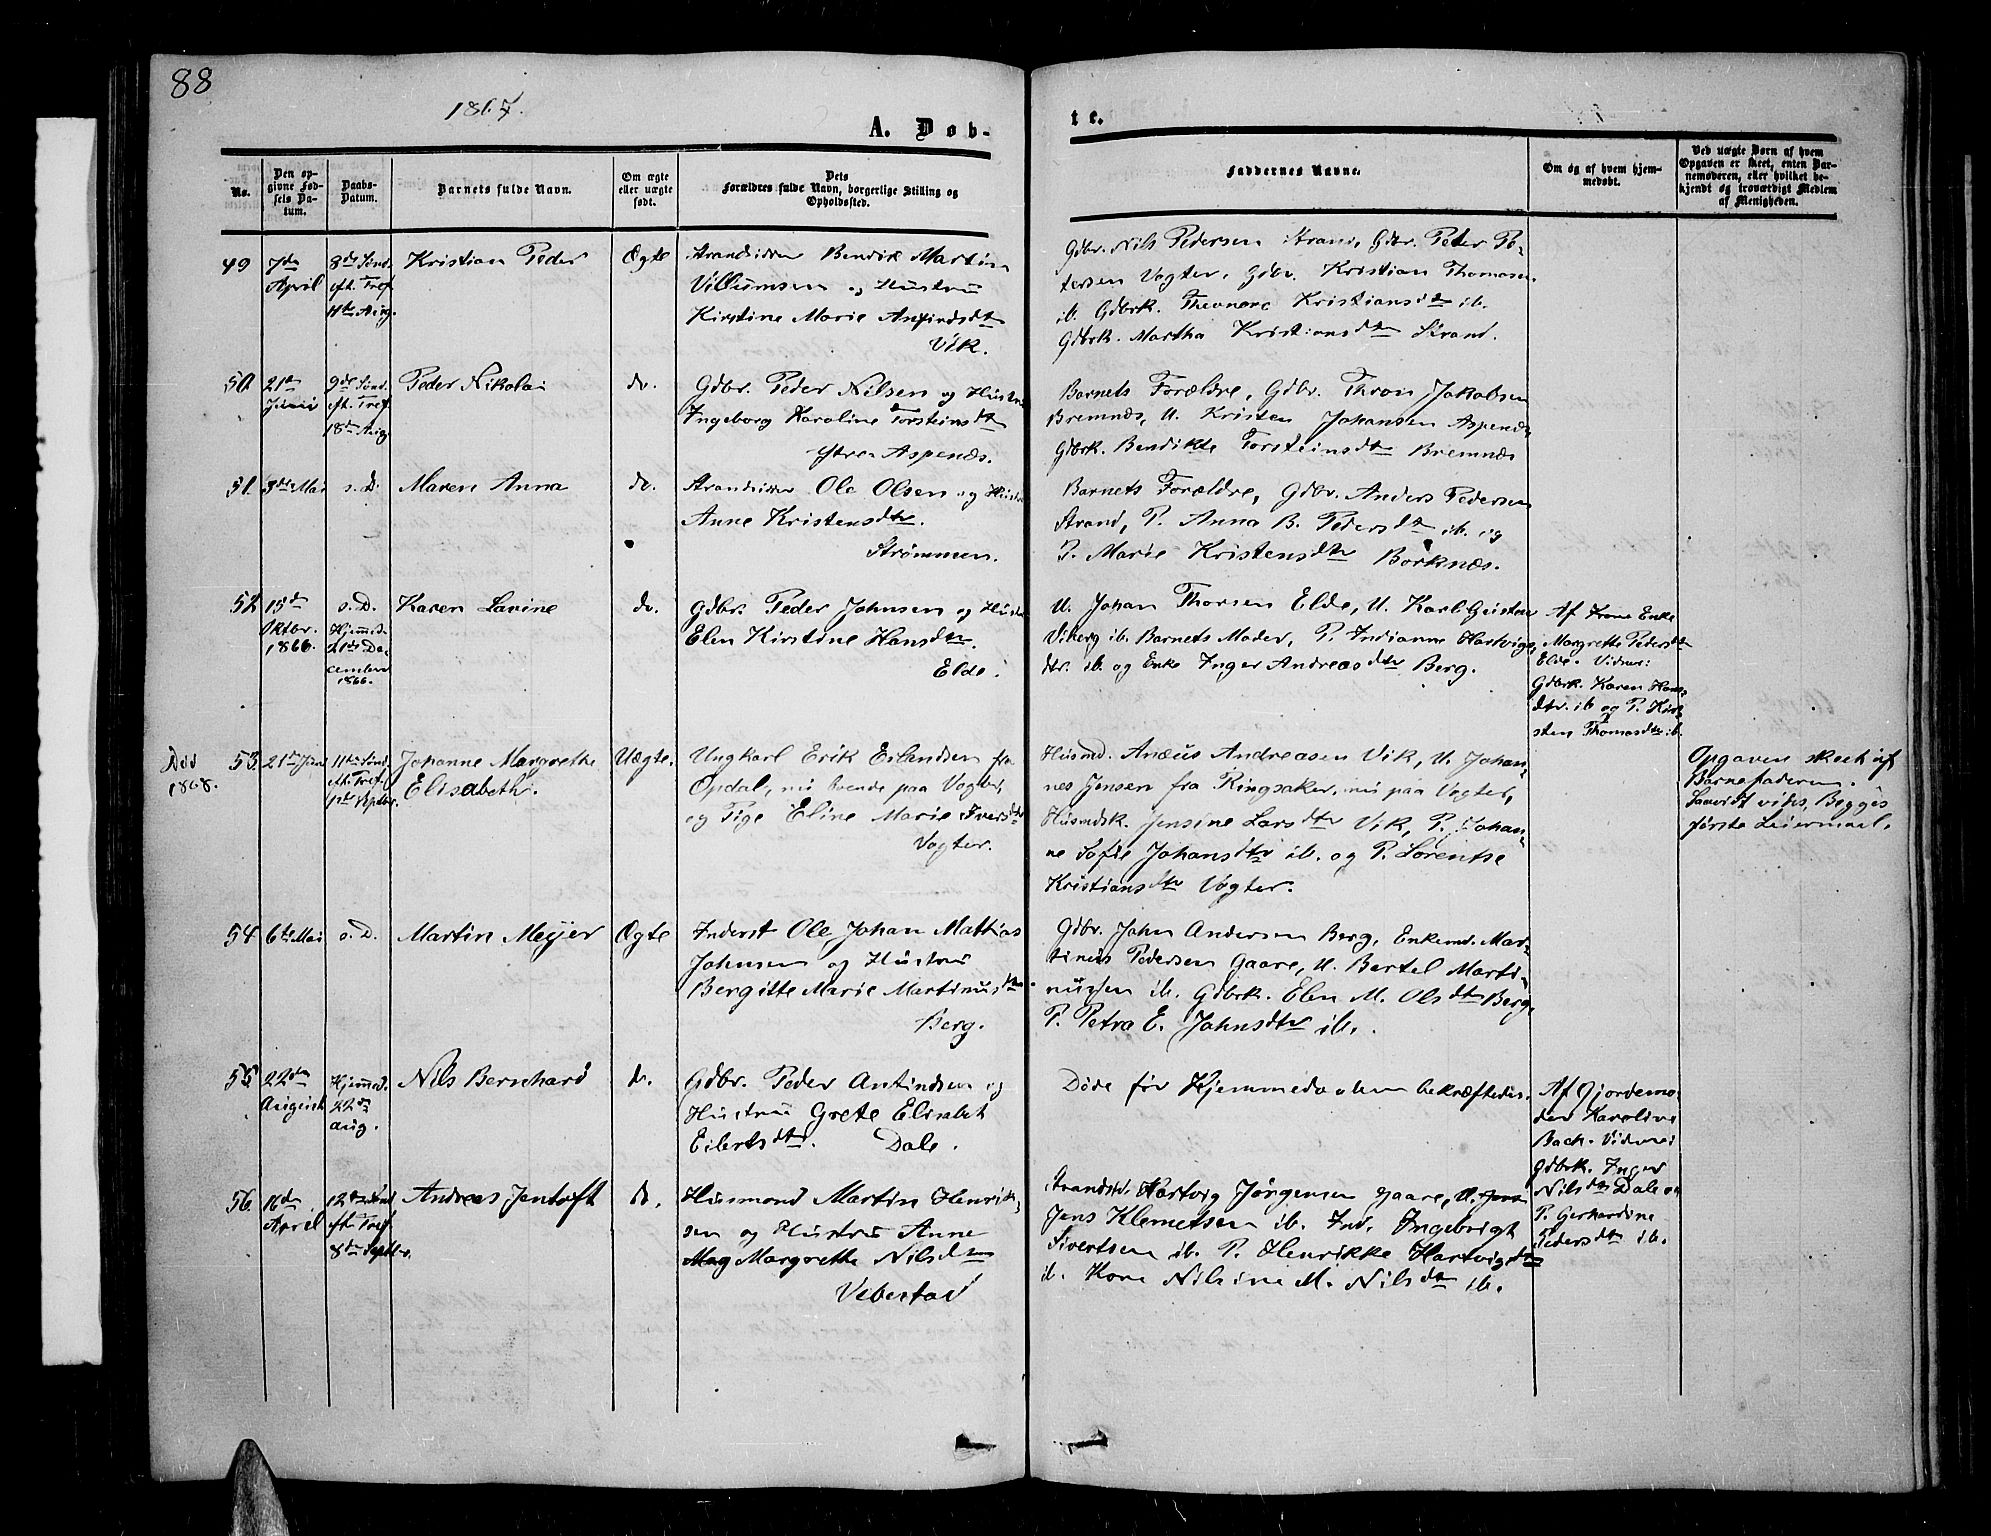 88
1867.
A. Døb-
te.
No.
Den op-
givne Fød-
sels Da-
tum.
Daabs-
Datum.
Barnets fulde Navn.
Om ægte
eller uægte
født.
Dets
Forældres fulde Navn, borgerlige Stilling og
Opholdssted.
Faddernes Navne.
Om og af hvem hjem-
medøbt.
Ved uægte Børn af hvem
Opgaven er skeet, enten Bar-
nemoderen, eller hvilket be-
kjendt og troværdigt Medlem
af Menigheden.
49
7de
April
8de Sønd.
eft. Tref.
11te Aug.
Kristian Peder
Ægte
Strandsidder Bendik Martin
Villumsen og Hustru
Kirstine Marie Anfindsdtr
Vik.
Gdbr. Nils Pedersen Strand, Gdbr. Peder Pe-
tersen Vogter, Gdbr. Kristian Thomasen
ib. Gdbrk. Theonora Kristiansdtr ib.
Gdbrk. Martha Kristiansdtr Strand.
50
21de
Juni
9de Sønd.
eft. Tref.
18de Aug.
Peder Nikolai
do.
Gdbr. Peder Nilsen og Hustru
Ingeborg Karoline Torsteinsdtr
Ytre Aspenæs.
Barnets Forældre, Gdbr. Thron Jakobsen
Bremnæs, U. Kristen Johansen Aspenæs
Gdbrk. Bendikte Torsteinsdtr Bremnæs
51.
3de Mai
s. D.
Maren Anna
do.
Strandsidder Ole Olsen og Hustru
Anne Kristensdtr.
Strømmen.
Barnets Forældre, Gdbr. Anders Pedersen
Strand, P. Anna B. Pedersdtr ib. og
P. Marie Kristensdtr Borknæs.
52
15de
Oktbr.
1866.
s. D.
Hjemmed.
21de De-
cember
1866.
Karen Lavine
do.
Gdbr. Peder Johnsen og Hustru
Elen Kirstine Hansdtr.
Elde.
U. Johan Thorsen Elde, U. Karl Gusten
Viberg ib. Barnets Moder, P. Indianne Hartvigs-
dtr. ib. og Enke Inger Andreasdtr Berg.
Af Kone Enke
Margrethe Pedersdtr
Elde. Vidner:
Gdbrk. Karen Hans-
dtr. ib og P. Kir-
sten Thomasdtr ib.
Død
1868.
53.
21de Juni
11te Sønd.
eft. Tref.
1ste Septbr.
Johanne Margrethe
Elisabeth.
Uægte.
Ungkarl Erik Erlandsen fra
Opdal, nu boende paa Vogter,
og Pige Eline Marie Iversdtr
Vogter.
Husmd. Anæus Andreasen Vik, U. Johan-
nes Jensen fra Ringsaker, nu paa Vogter,
Husmdsk. Jensine Larsdtr Vik, P. Johan-
ne Sofie Johansdtr ib. og P. Lorentse
Kristiansdtr Vogter.
Opgaven skeet af
Barnefaderen.
Begges
første Leiermaal.
54.
6te Mai
s. D.
Martin Meyer
Ægte
Inderst Ole Johan Mathias
Johnsen og Hustru
Bergitte Marie Martinusdtr.
Berg.
Gdbr. John Andersen Berg, Enkemd. Mar-
tinus Pedersen Gaare, U. Bertel Marti-
nussen ib. Gdbrk. Elen M. Olsdtr Berg,
P. Petra E. Johnsdtr ib.
55
22de
August
Hjemmed.
22de
Aug.
Nils Bernhard
do.
Gdbr. Peder Anfindsen og
Hustru Grete Elisabet
Eilertsdtr. Dale.
Døde før Hjemmedaaben bekræftedes.
Af Gjordemo-
der Karoline
Bach. Vidner
Gdbrk. Inger
Nilsdtr Dale og
P. Gerhardine
Pedersdtr ib.
56.
16de
April
12te Sønd.
eft. Tref.
8de Septbr.
Andreas Jentoft
do.
Husmand Martin Henrik-
sen og Hustru Anne
Mag Margrethe Nilsdtr
Vebostad
Strandsd. Hartvig Jørgensen Gaare, U. Jens
Jens Klemetsen ib. Ind. Ingebrigt
Sivertsen ib. P. Henrikke Hartvigsdtr
ib. Kone Nilsine M. Nilsdtr ib.